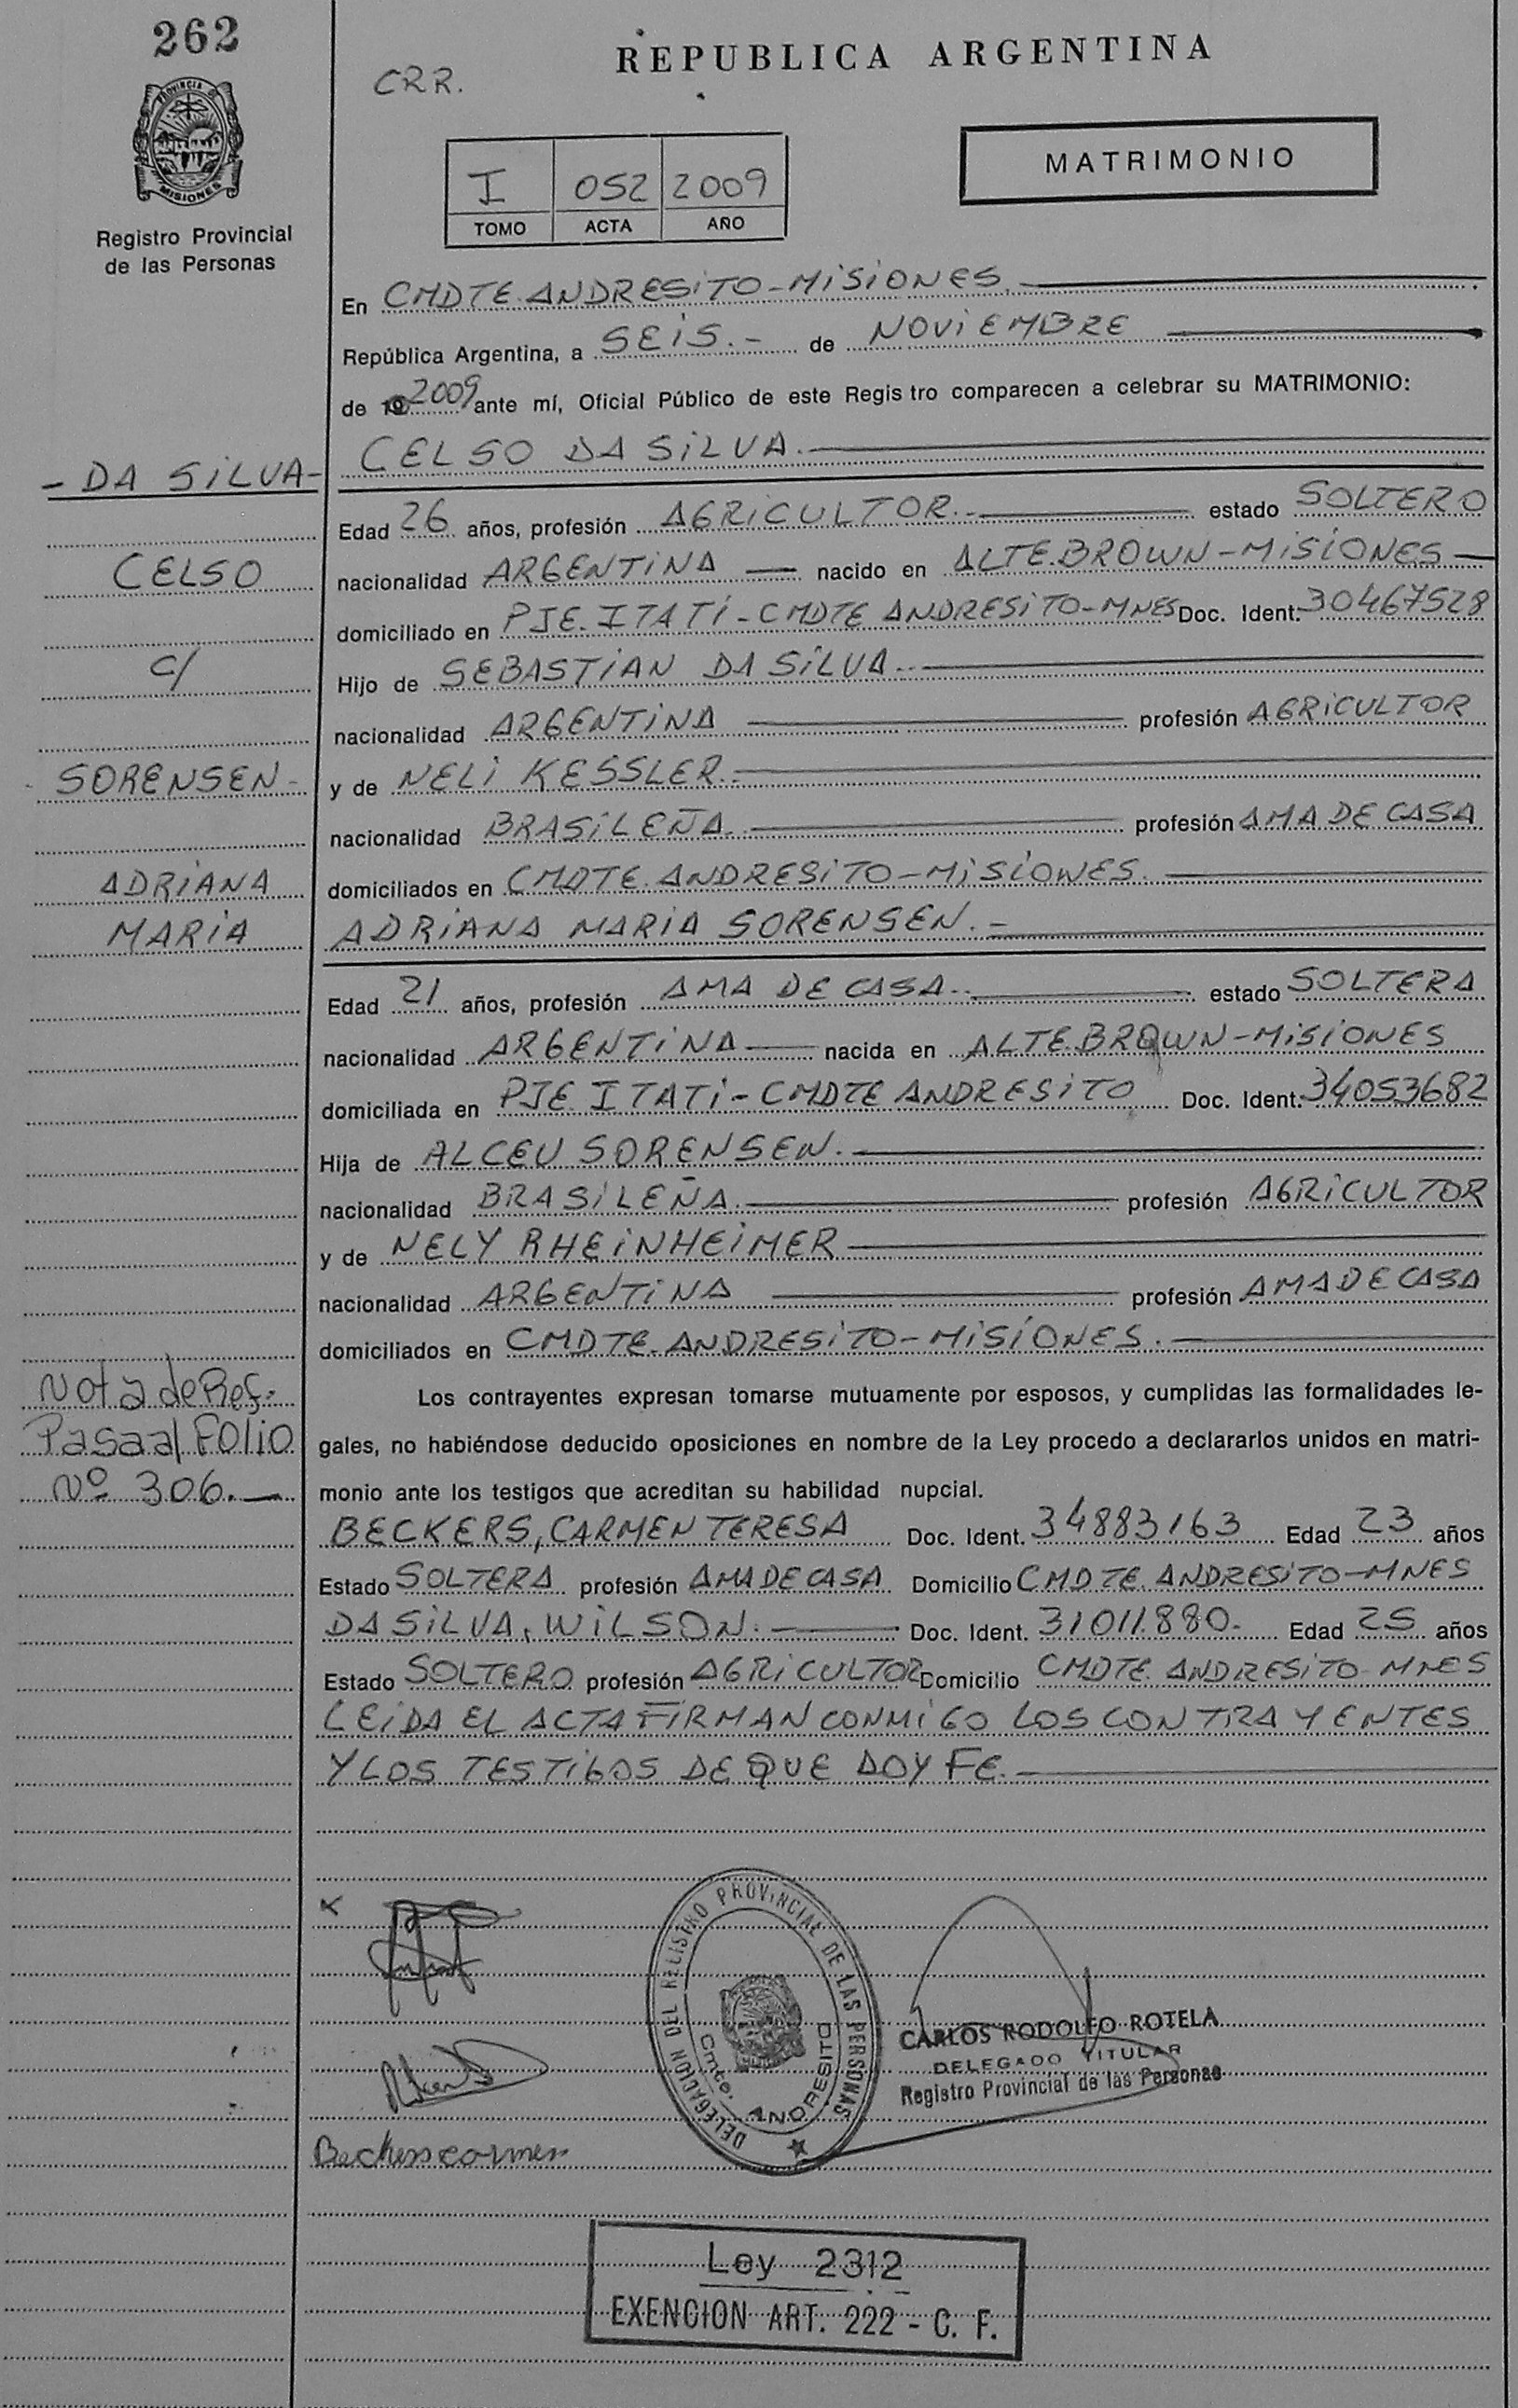 262
PROVINCIA DE
MISIONES
Registro Provincial
de las Personas
CRR.
REPUBLICA ARGENTINA
I 052 2009
TOMO ACTA AÑO
MATRIMONIO
En CMDTE. ANDRESITO-MISIONES.
República Argentina, a SEIS.- de NOVIEMBRE
de 19 2009 ante mí, Oficial Público de este Regis tro comparecen a celebrar su MATRIMONIO:
- DA SILVA- CELSO DA SILVA.
Edad 26 años, profesión AGRICULTOR.- estado SOLTERO
CELSO nacionalidad ARGENTINA nacido en ALTE.BROWN-MISIONES
domiciliado en PJE. ITATI-CMDTE ANDRESITO-MNES Doc. Ident. 30467528
C/ Hijo de SEBASTIAN DA SILVA.
nacionalidad ARGENTINA profesión AGRICULTOR
SORENSEN- y de NELI KESSLER.
nacionalidad BRASILEÑA. profesión AMA DE CASA
ADRIANA domiciliados en CMDTE. ANDRESITO-MISIONES.
MARIA ADRIANA MARIA SORENSEN.-
Edad 21 años, profesión AMA DE CASA. estado SOLTERA
nacionalidad ARGENTINA nacida en ALTE.BROWN-MISIONES
domiciliada en PJE. ITATI-CMDTE ANDRESITO Doc. Ident. 34053682
Hija de ALCEU SORENSEN.
nacionalidad BRASILEÑA. profesión AGRICULTOR
y de NELY RHEINHEIMER
nacionalidad ARGENTINA profesión AMA DE CASA
domiciliados en CMDTE. ANDRESITO-MISIONES.
Nota de Ref.- Los contrayentes expresan tomarse mutuamente por esposos, y cumplidas las formalidades le-
Pasa al FOLIO gales, no habiéndose deducido oposiciones en nombre de la Ley procedo a declararlos unidos en matri-
Nº 306.- monio ante los testigos que acreditan su habilidad nupcial.
BECKERS, CARMEN TERESA Doc. Ident. 34883163 Edad 23 años
Estado SOLTERA profesión AMA DE CASA Domicilio CMDTE. ANDRESITO-MNES
DA SILVA, WILSON. Doc. Ident. 31011.880- Edad 25 años
Estado SOLTERO profesión AGRICULTOR Domicilio CMDTE. ANDRESITO-MNES
LEIDA EL ACTA FIRMAN CONMIGO LOS CONTRAYENTES
Y LOS TESTIGOS DE QUE DOY FE.
DELEGACION DEL REGISTRO PROVINCIAL DE LAS PERSONAS
Cmte. ANDRESITO
CARLOS RODOLFO ROTELA
DELEGADO TITULAR
Registro Provincial de las Personas
Beckers carmen
Ley 2312
EXENCION ART. 222 - C. F.